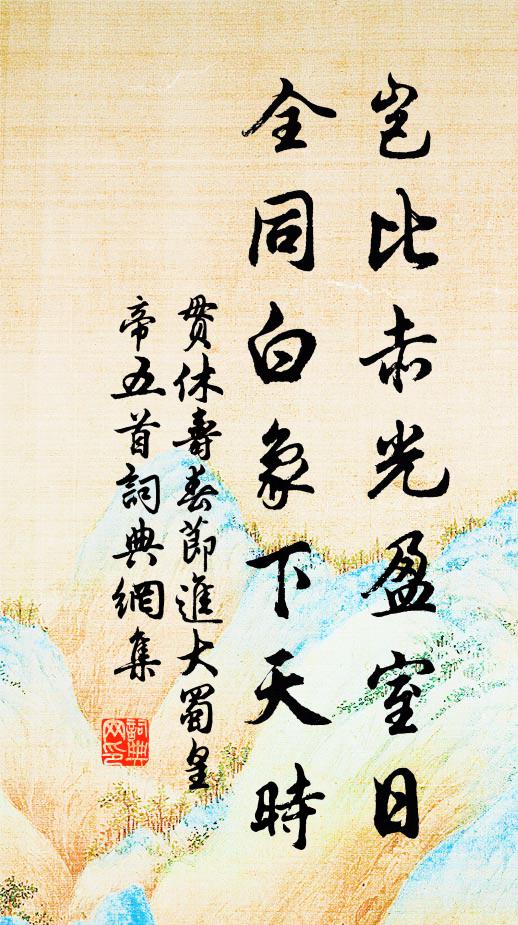 豈比赤光盈室日
全同白象下天時
貫休壽春節進大蜀皇
帝五首詞典網集
詞典
网印